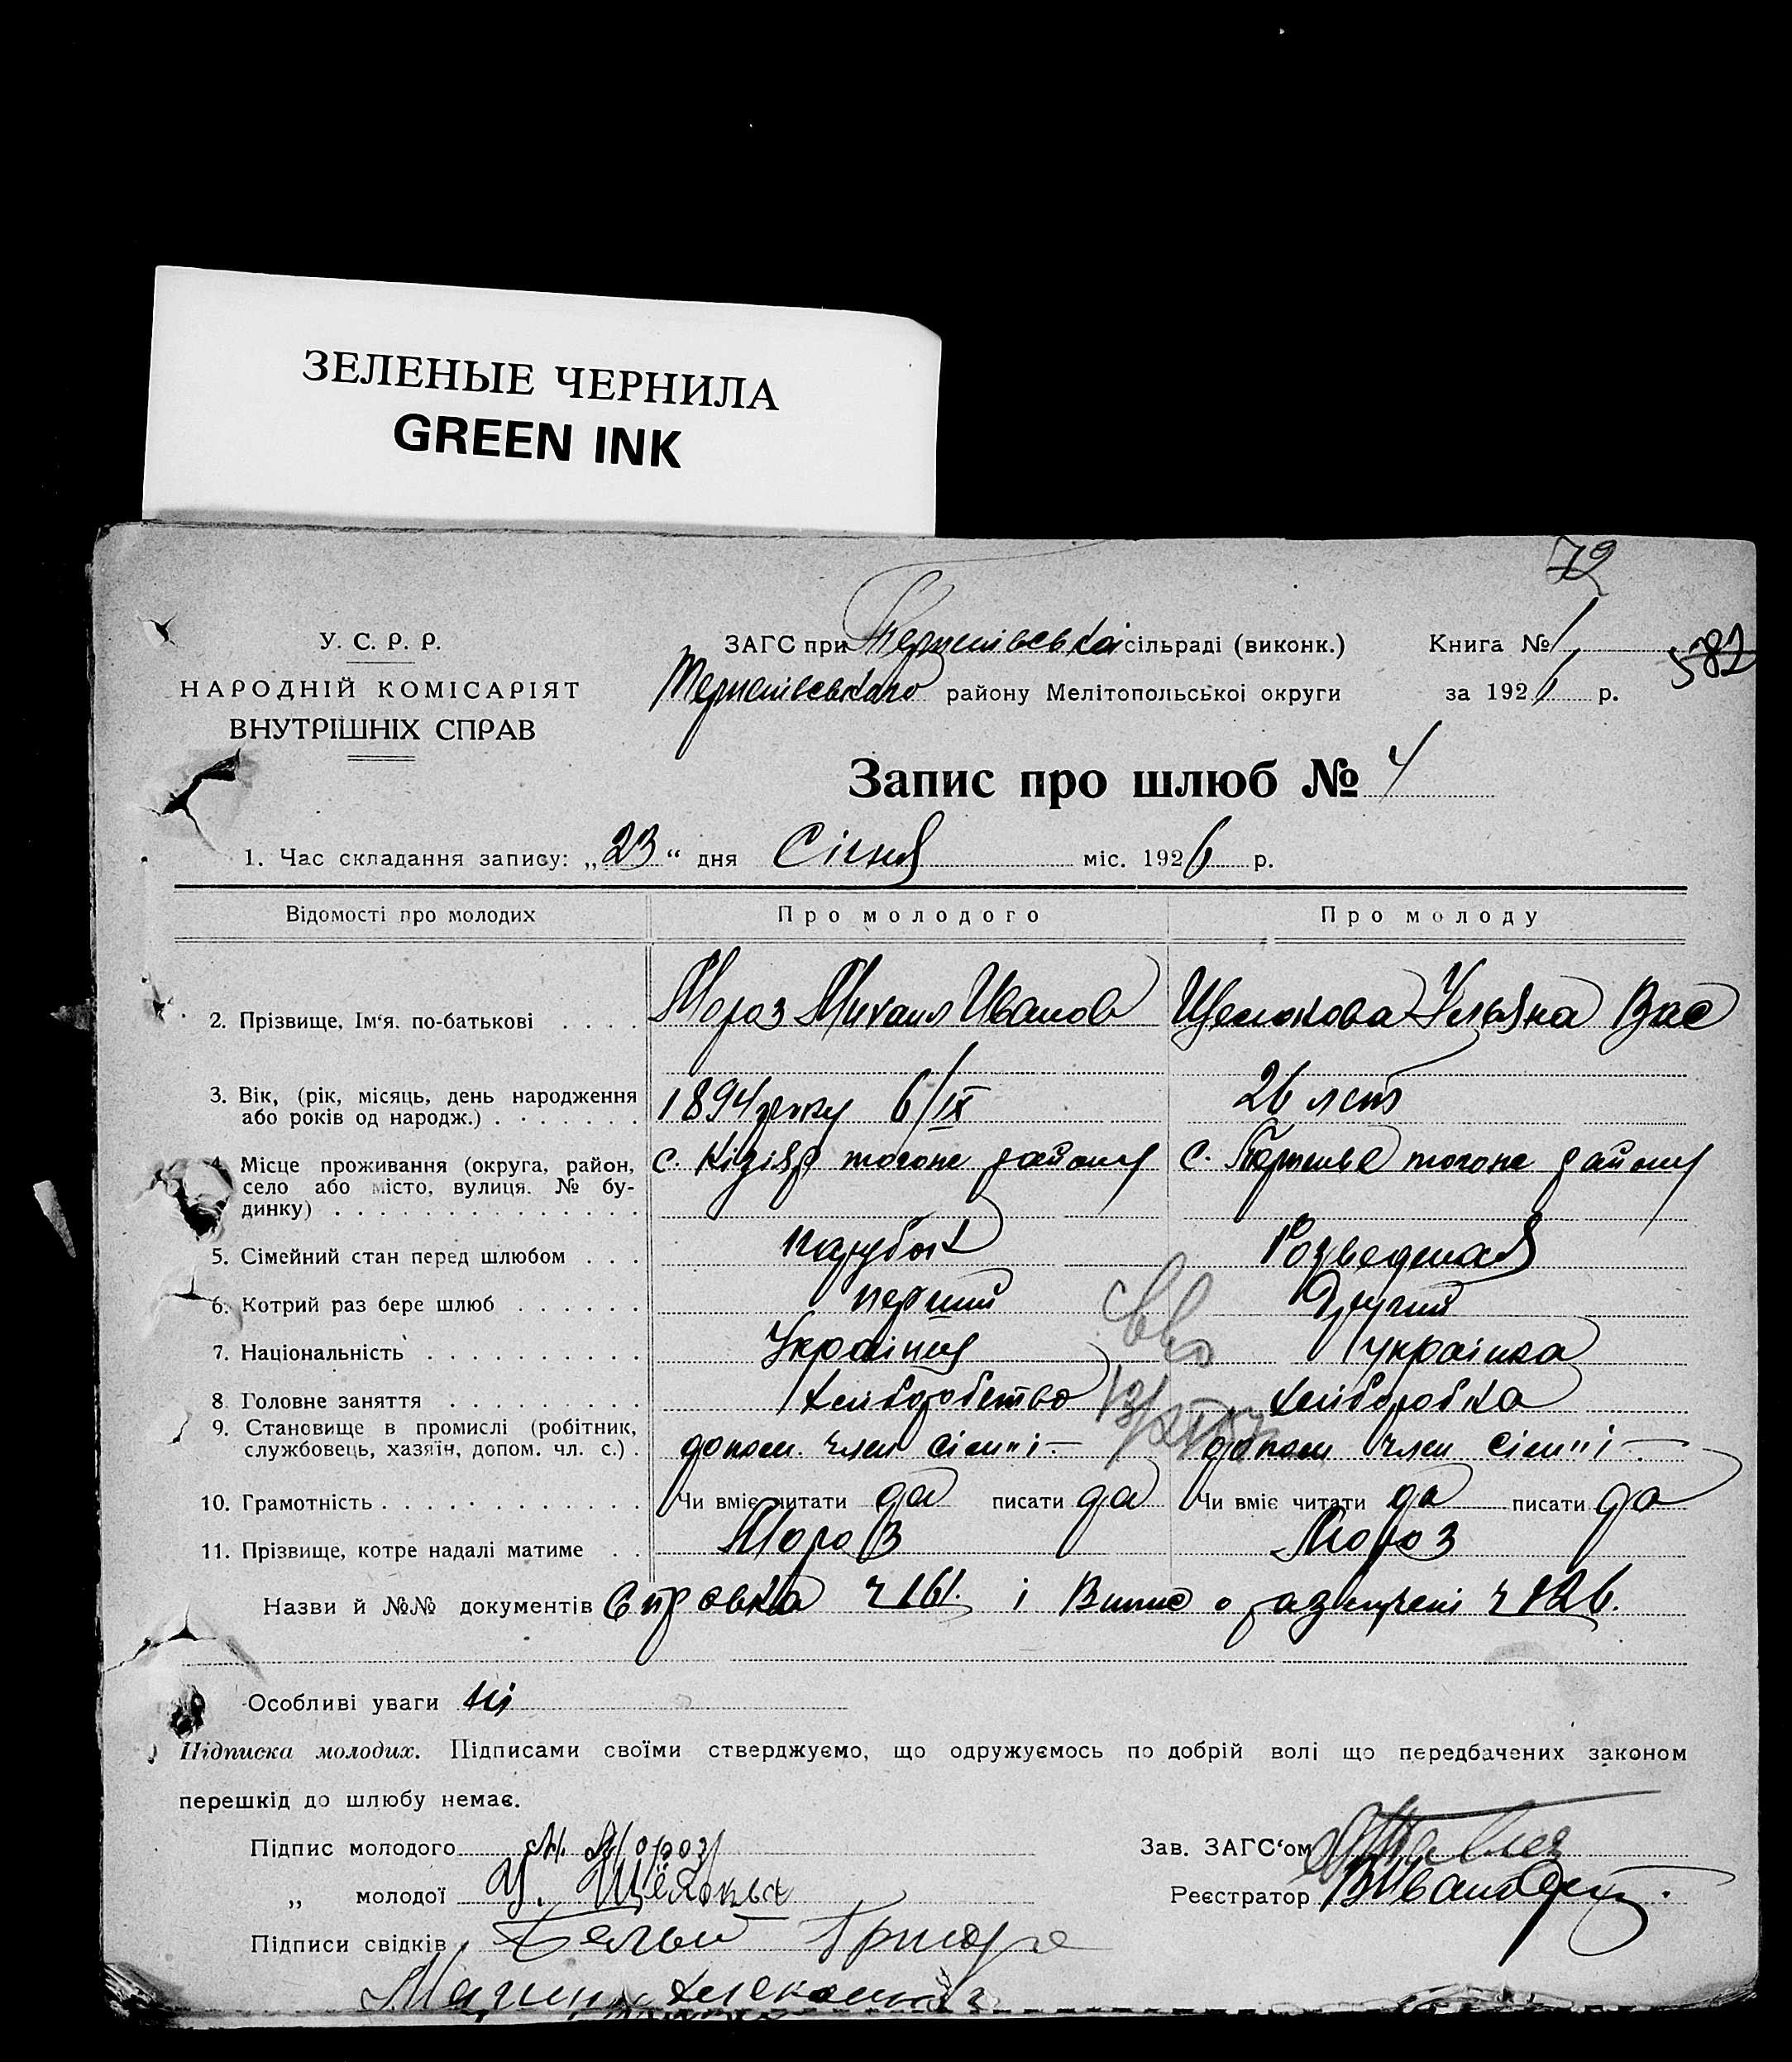 ЗЕЛЕНЫЕ ЧЕРНИЛА
GREEN INK
72
582
У. С. Р. Р.
НАРОДНІЙ КОМІСАРІЯТ
ВНУТРІШНІХ СПРАВ
ЗАГС при Терпенівській сільраді (виконк.)
Терпенівського району Мелітопольської округи
Книга № 1
за 1926 р.
Запис про шлюб № 4
1. Час складання запису: „23“ дня Січня міс. 1926 р.
Відомості про молодих Про молодого Про молоду
2. Прізвище, Ім'я. по-батькові . . . . Мороз Михаил Иванов Щелокова Ульяна Вас
3. Вік, (рік, місяць, день народження
або років од народж.) . . . . . . . 1894 року 6/IX 26 лет
4. Місце проживання (округа, район,
село або місто, вулиця. № бу-
динку) . . . . . . . . . . . . . . с. Кізіяр того не району с. Терпенье того не району
5. Сімейний стан перед шлюбом . . . парубок Розведеная
6. Котрий раз бере шлюб . . . . . . перший Другий
7. Національність . . . . . . . . . . Українец українка
8 Головне заняття . . . . . . . . . хлиборобство хлиборобка
9. Становище в промислі (робітник,
службовець, хазяїн, допом. чл. с.) . допом. член сім"ї — допом член сім"ї —
10. Грамотність . . . . . . . . . . . . Чи вміє читати да писати да Чи вміє читати да писати да
11. Прізвище, котре надалі матиме . . Мороз Мороз
Назви й №№ документів Справка ч 161. і Випис о разлучені ч 126.
Особливі уваги ні
Підписка молодих. Підписами своїми стверджуємо, що одружуємось по добрій волі що передбачених законом
перешкід до шлюбу немає.
Підпис молодого М. Мороз Зав. ЗАГС'ом
„ молодої У. Щёлокова Реєстратор
Підписи свідків Белый Григоре